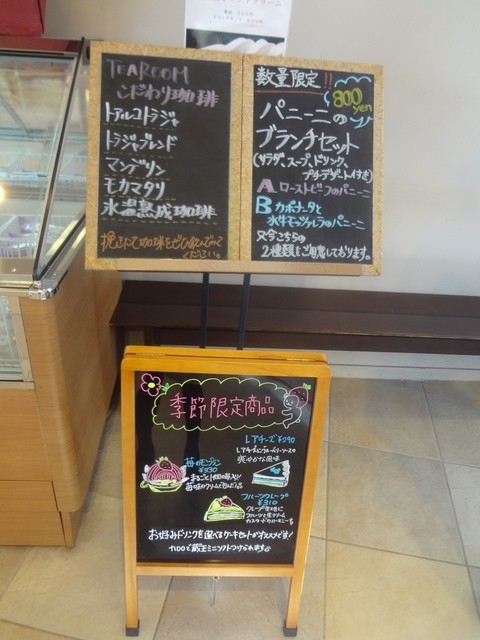 TEAROOM
こだわり珈琲
トアルコトラジャ
トラジャブレンド
マンデリン
モカマタリ
氷温熟成珈琲
挽きたて珈琲をぜひ飲んでみて
ください。
数量限定!!
800
yen
パニーニの
ブランチセット
(サラダ、スープ、ドリンク、
プチデザート付き)
A ローストビーフのパニーニ
B カポナータと
水牛モッツァレラのパニーニ
只今こちらの
2種類をご用意しております。
季節限定商品
レアチーズ ¥290
爽やかな風味
苺のモンブラン
¥330
フルーツクレープ
¥310
クレープ生地に
フルーツと生クリーム
お好みドリンクを選べるケーキセットがオススメです!
+100で蔵王ミニソフトつけられます